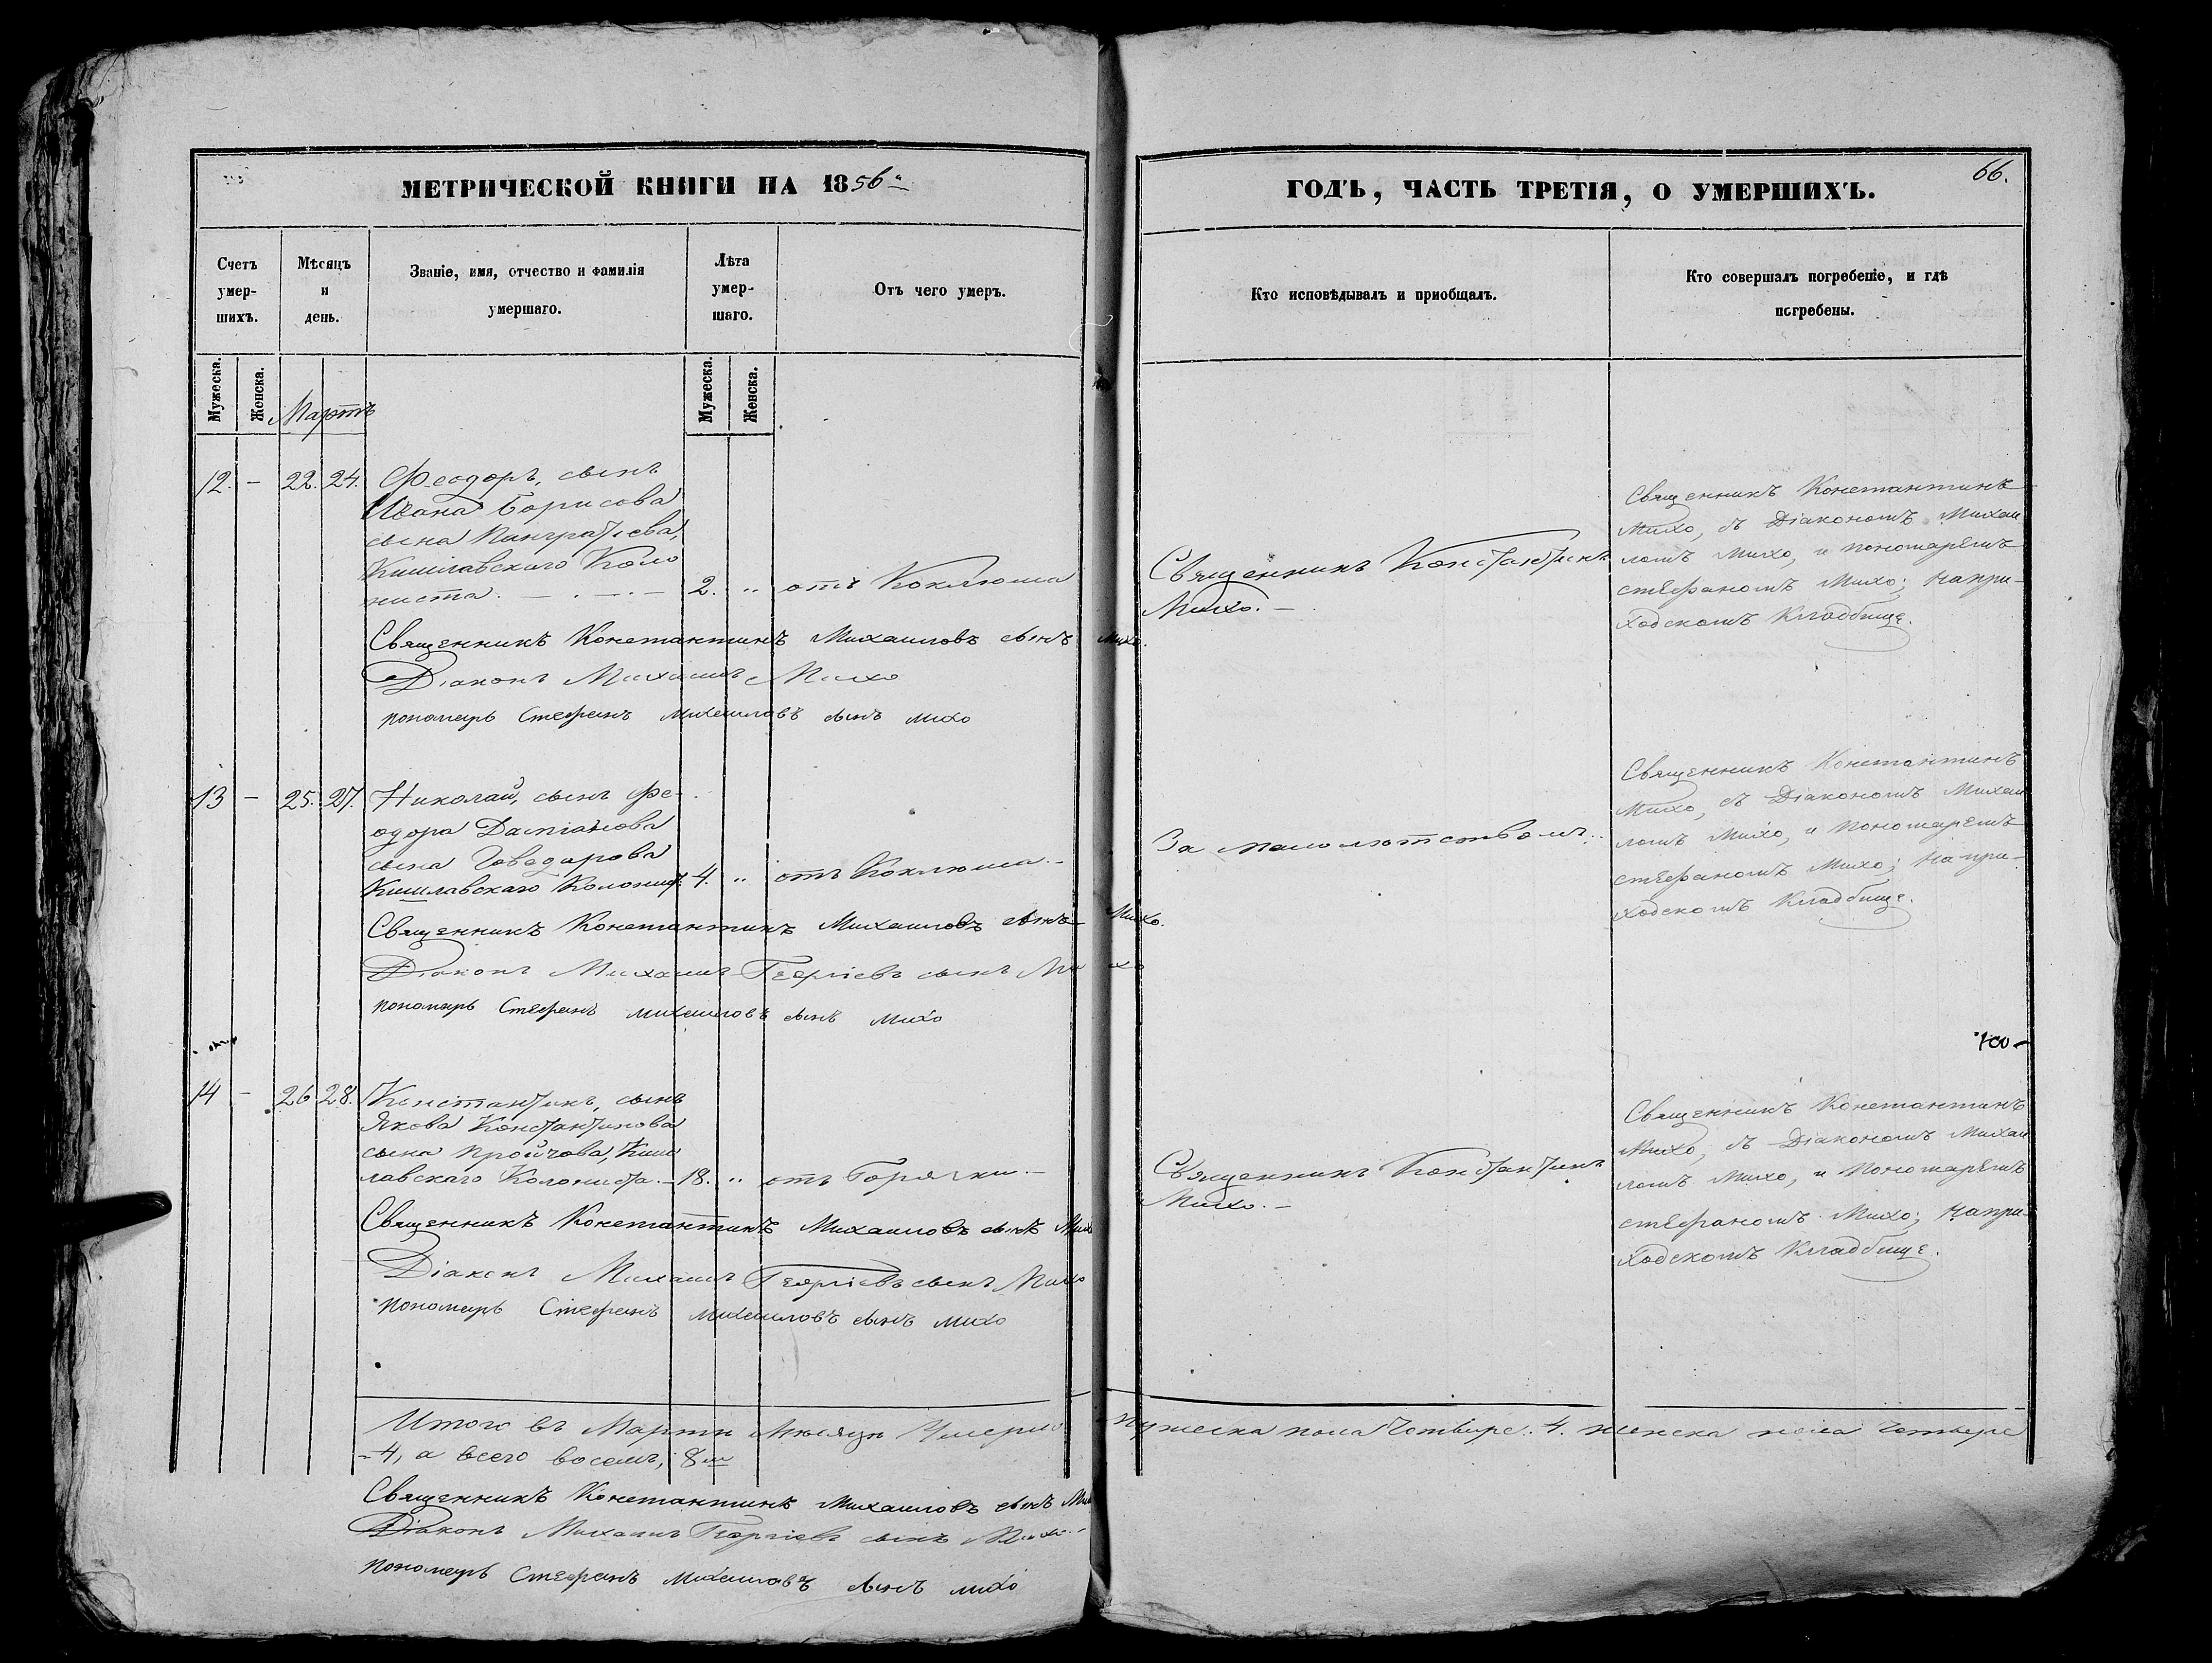 МЕТРИЧЕСКОЙ КНИГИ НА 1856й
Счетъ умер-шихъ.
Мѣсяцъ и день.
Званіе, имя, отчество и фамилія умершаго.
Лѣта умер-шаго.
Отъ чего умеръ.
Мужеска.
Женска.
Мартъ
Мужеска.
Женска.
12. – 22. 24. Феодоръ, сынъ
Ивана Борисова
сына
Кишлавскаго Коло
ниста. – . – . – 2. „ отъ Коклюша
Священникъ Константинъ Михаиловъ сынъ Михо.
Діаконъ Михаилъ Михо
пономарь Стефанъ михаиловъ сынъ михо
13 – 25. 27. Николай, сынъ Фе-
одора Даміанова
сына Говедарова
Кишлавскаго Колонист. 4. „ отъ Коклюша. –
Священникъ Константинъ Михаиловъ сынъ Михо.
Діаконъ Михаилъ Георгіевъ сынъ Михо
пономарь Стефанъ михаиловъ сынъ михо
14 – 26 28. Константинъ, сынъ
Якова Константинова
сына Пройчова, Киш
лавскаго Колониста. – 18. „ отъ Горячки. –
Священникъ Константинъ Михаиловъ сынъ Михо
Діаконъ Михаилъ Георгіевъ сынъ Михо
пономарь Стефанъ михаиловъ сынъ михо
Итого въ Мартѣ Мѣсяцѣ Умерло
– 4, а всего восемъ, 8м
Священникъ Константинъ Михаиловъ сынъ Михо
Діаконъ Михаилъ Георгіевъ сынъ Михо. –
пономарь Стефанъ михаиловъ сынъ михо
66.
ГОДЪ, ЧАСТЬ ТРЕТІЯ, О УМЕРШИХЪ.
Кто исповѣдывалъ и приобщалъ.
Кто совершалъ погребеніе, и гдѣ погребены.
Священникъ Константинъ
Михо. –
Священникъ Константинъ
Михо, съ Діакономъ Михаи
ломъ Михо, и пономаремъ
стефаномъ Михо; на при-
ходскомъ Кладбище.
За малолѣтствомъ.
Священникъ Константинъ
Михо, съ Діакономъ Михаи
ломъ Михо, и пономаремъ
стефаномъ Михо; на при-
ходскомъ Кладбище.
Священникъ Константинъ
Михо. –
Священникъ Константинъ
Михо, съ Діакономъ Михаи
ломъ Михо, и пономаремъ
стефаномъ Михо; на при-
ходскомъ Кладбище.
мужеска пола Четыре. 4. женска пола четыре